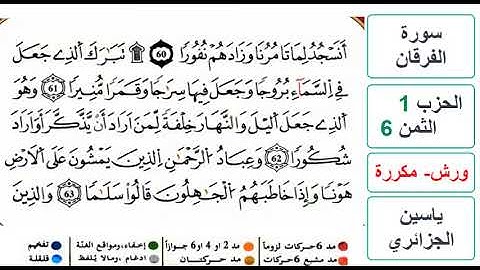 أَنَسْجُدُ لِمَا تَامُرُنَا وَزَادَهُمْ نُفُورًا 60 ۞ تَبَارَكَ اَلذِے جَعَلَ
فِے اِلسَّمَآءِ بُرُوجًا وَجَعَلَ فِيهَا سِرَٰجًا وَقَمَرًا مُّنِيرًا 61 وَهُوَ
اَلذِے جَعَلَ اَليْلَ وَالنَّهَارَ خِلْفَةً لِّمَنَ اَرَادَ أَنْ يَّذَّكَّرَ أَوَ اَرَادَ
شُكُورًا 62 وَعِبَادُ اُلرَّحْمَٰنِ اِلذِينَ يَمْشُونَ عَلَى اَلَارْضِ
هَوْنًا وَإِذَا خَاطَبَهُمُ اُلْجَٰهِلُونَ قَالُواْ سَلَٰمًا 63 وَالذِينَ
سورة
الفرقان
الحزب 1
الثمن 6
ورش- مكررة
ياسين
الجزائري
مد 6 حركات لزوماً
مد 2 أو 4 أو 6 جوازاً
إخفاء، ومواقع الغنة
تفخيم
مد مشبع 6 حركات
مد حركتان
ادغام، ومالا يلفظ
قلقلة